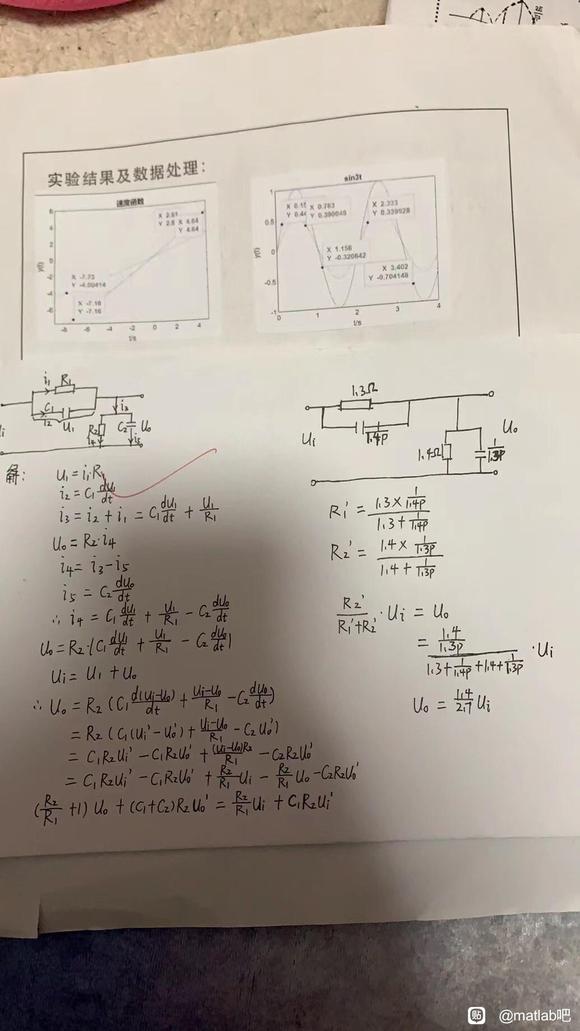 实验结果及数据处理:
速度函数
X 2.81
X 4.64
Y 4.64
X -7.73
Y -4.00414
X -7.16
Y -7.16
y(t)
t/s
sin3t
X 0.763
Y 0.390049
X 2.333
Y 0.339928
X 1.156
Y -0.320642
X 3.402
Y -0.704148
y(t)
t/s
i₁ R₁
C₁
i₂ U₁
i₃
R₂ C₂ U₀
i₄ i₅
解:
U₁ = i₁·R₁
i₂ = C₁ dU₁/dt
i₃ = i₂ + i₁ = C₁ dU₁/dt + U₁/R₁
U₀ = R₂·i₄
i₄ = i₃ - i₅
i₅ = C₂ dU₀/dt
∴ i₄ = C₁ dU₁/dt + U₁/R₁ - C₂ dU₀/dt
U₀ = R₂·(C₁ dU₁/dt + U₁/R₁ - C₂ dU₀/dt)
Ui = U₁ + U₀
∴ U₀ = R₂ (C₁ d(Ui-U₀)/dt + Ui-U₀/R₁ - C₂ dU₀/dt)
= R₂ (C₁(Ui' - U₀') + Ui-U₀/R₁ - C₂U₀')
= C₁R₂Ui' - C₁R₂U₀' + (Ui-U₀)R₂/R₁ - C₂R₂U₀'
= C₁R₂Ui' - C₁R₂U₀' + R₂/R₁ Ui - R₂/R₁ U₀ - C₂R₂U₀'
(R₂/R₁ + 1) U₀ + (C₁+C₂)R₂U₀' = R₂/R₁ Ui + C₁R₂Ui'
1.3Ω
Ui 1/1.4p
U₀
1.4Ω 1/1.3p
R₁' = 1.3 × 1/1.4p / 1.3 + 1/1.4p
R₂' = 1.4 × 1/1.3p / 1.4 + 1/1.3p
R₂'/R₁'+R₂' · Ui = U₀
= 1.4/1.3p / 1.3 + 1/1.4p + 1.4 + 1/1.3p · Ui
U₀ = 1.4/2.7 Ui
贴 @matlab吧